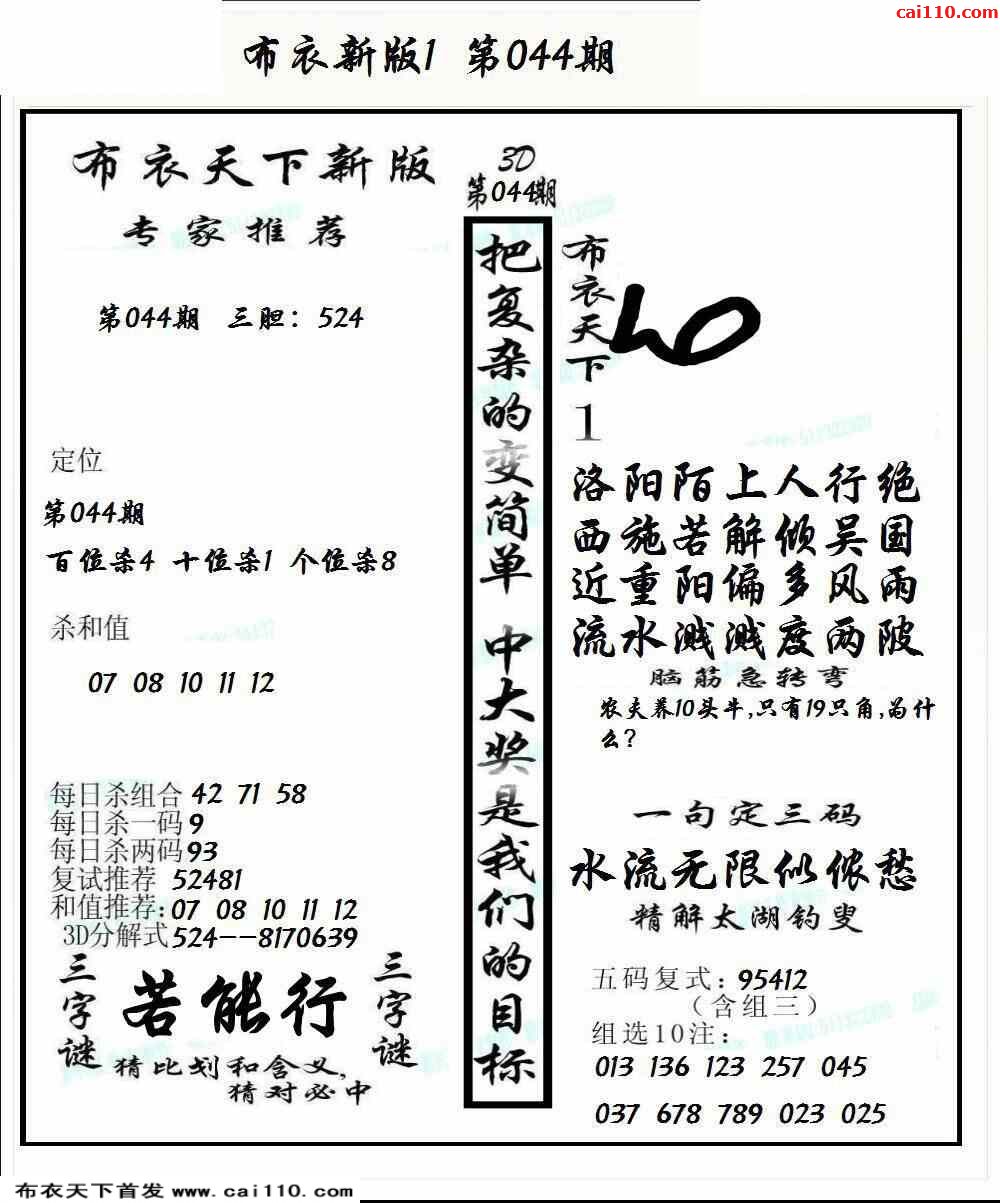 cai110.com
布衣新版1 第044期
布衣天下新版
专家推荐
第044期 三胆：524
定位
第044期
百位杀4 十位杀1 个位杀8
杀和值
07 08 10 11 12
每日杀组合 42 71 58
每日杀一码 9
每日杀两码 93
复试推荐 52481
和值推荐：07 08 10 11 12
3D分解式 524--8170639
三字谜
若能行
三字谜
猜比划和含义，
猜对必中
3D
第044期
把复杂的变简单 中大奖是我们的目标
布衣天下1
洛阳陌上人行绝
西施若解倾吴国
近重阳偏多风雨
流水溅溅度两陂
脑筋急转弯
农夫养10头牛,只有19只角,为什
么?
一句定三码
水流无限似侬愁
精解太湖钓叟
五码复式：95412
（含组三）
组选10注：
013 136 123 257 045
037 678 789 023 025
布衣天下首发 www.cai110.com